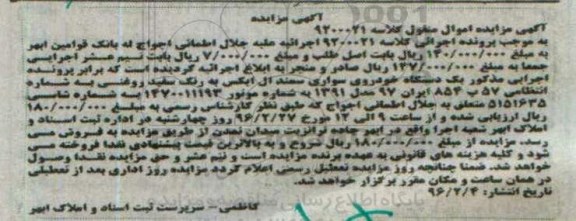 آگهی مزایده
آگهی مزایده اموال منقول کلاسه ۹۲۰۰۰۲۱
به موجب پرونده اجرائی کلاسه ۹۲۰۰۰۲۱ اجرائیه علیه جلال اطمانی اجواج له بانک قوامین ابهر
به مبلغ ۱۴۰/۰۰۰/۰۰۰ ریال بابت اصل طلب و مبلغ ۷/۰۰۰/۰۰۰ ریال بابت نیم عشر اجرایی
جمعا به مبلغ ۱۴۷/۰۰۰/۰۰۰ ریال صادر و منجر به ابلاغ اجرائیه گردیده است که برابر پرونده
اجرایی مذکور یک دستگاه خودروی سواری سمند ال ایکس به رنگ سفید روغنی به شماره
انتظامی ۵۷ ب ۸۵۴ ایران ۹۷ مدل ۱۳۹۱ به شماره موتور ۱۴۷۰۰۱۱۱۹۳ به شماره شاسی
۵۱۵۱۶۳۵ متعلق به جلال اطمانی اجواج که طبق نظر کارشناسی رسمی به مبلغ ۱۸۰/۰۰۰/۰۰۰
ریال ارزیابی شده و از ساعت ۹ الی ۱۲ مورخ ۹۶/۲/۲۷ روز چهارشنبه در اداره ثبت اسناد و
املاک ابهر شعبه اجرا واقع در ابهر جاده ترانزیت میدان تمدن از طریق مزایده به فروش می
رسد. مزایده از مبلغ ۱۸۰/۰۰۰/۰۰۰ ریال شروع و به بالاترین قیمت پیشنهادی نقدا فروخته می
شود و کلیه هزینه های قانونی به عهده برنده مزایده است و نیم عشر و حق مزایده نقدا وصول
خواهد شد. ضمنا چنانچه روز مزایده تعطیل رسمی اعلام گردد مزایده روز اداری بعد از تعطیلی
در همان ساعت و مکان مقرر برگزار خواهد شد.
تاریخ انتشار: ۹۶/۲/۴
کاظمی - سرپرست ثبت اسناد و املاک ابهر